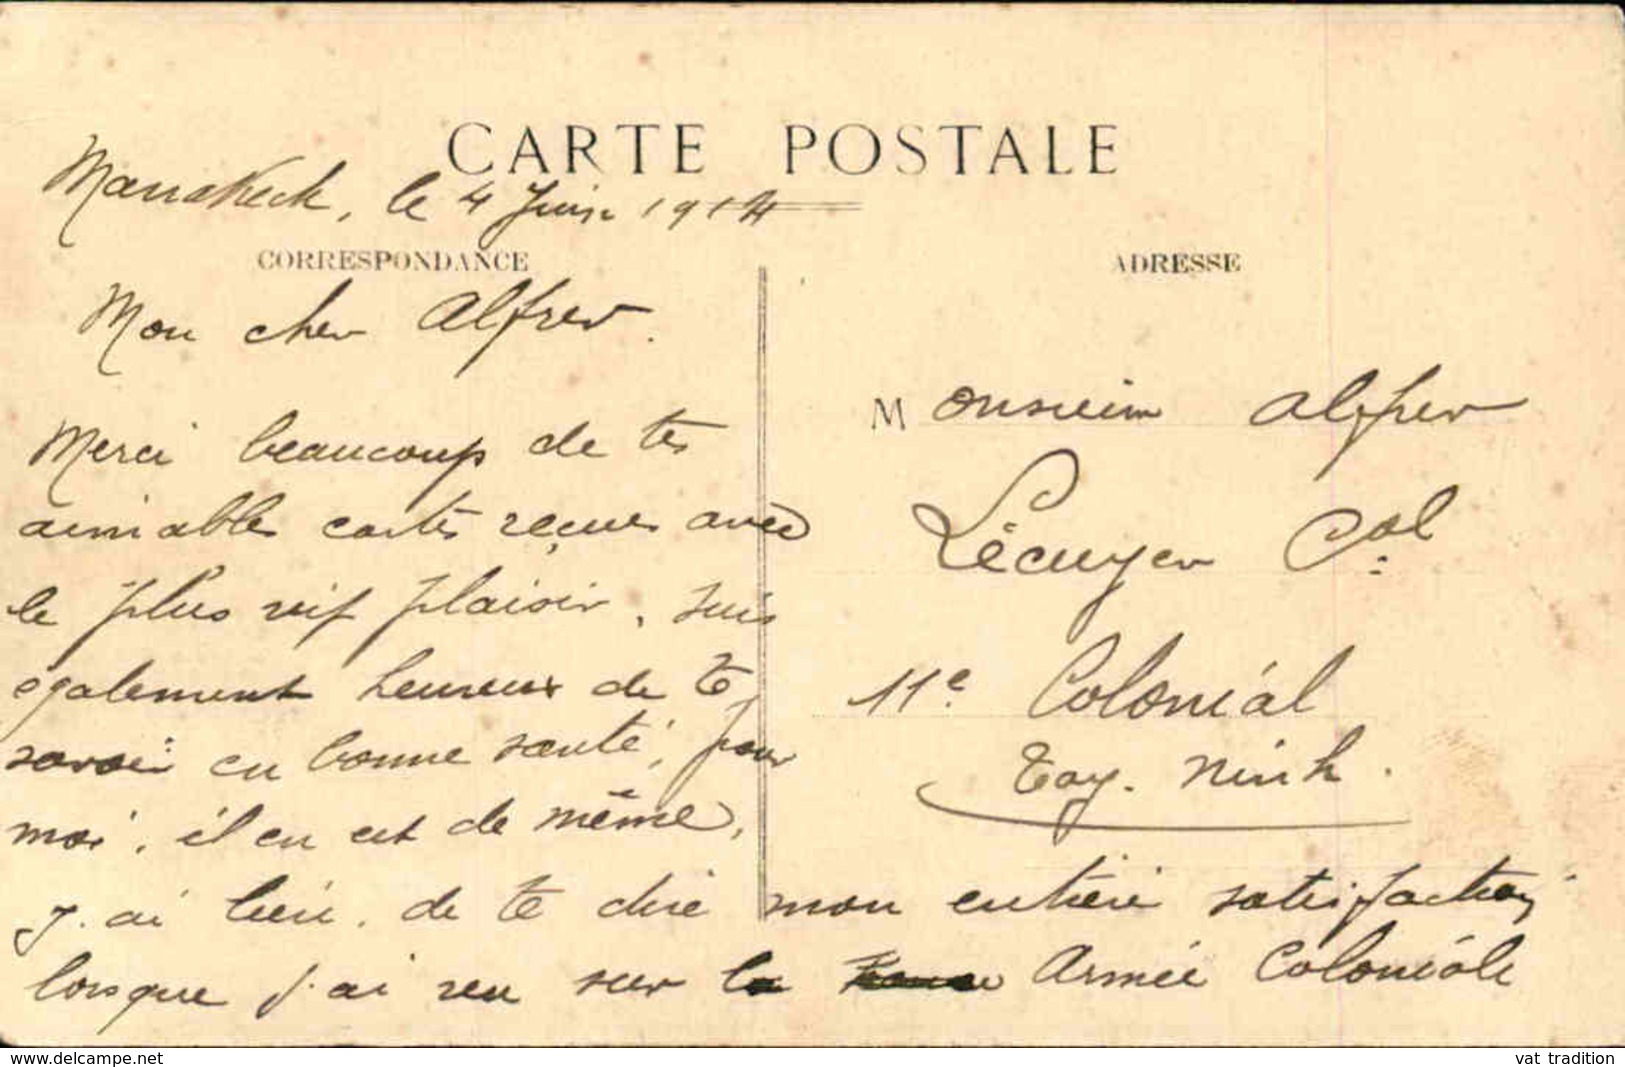 CARTE POSTALE
Marrakech, le 4 Juin 1914
CORRESPONDANCE
Mon cher Alfred.
Merci beaucoup de tes
aimables cartes reçues avec
le plus vif plaisir, suis
également heureux de te
savoir en bonne santé, pour
moi, il en est de même,
j'ai lieu de te dire mon entière satisfaction
lorsque j'ai vu sur la Armée Coloniale
ADRESSE
Monsieur Alfred
Lécuyer Cal
11e Colonial
Tay-Ninh.
delcampe.net
vat_tradition